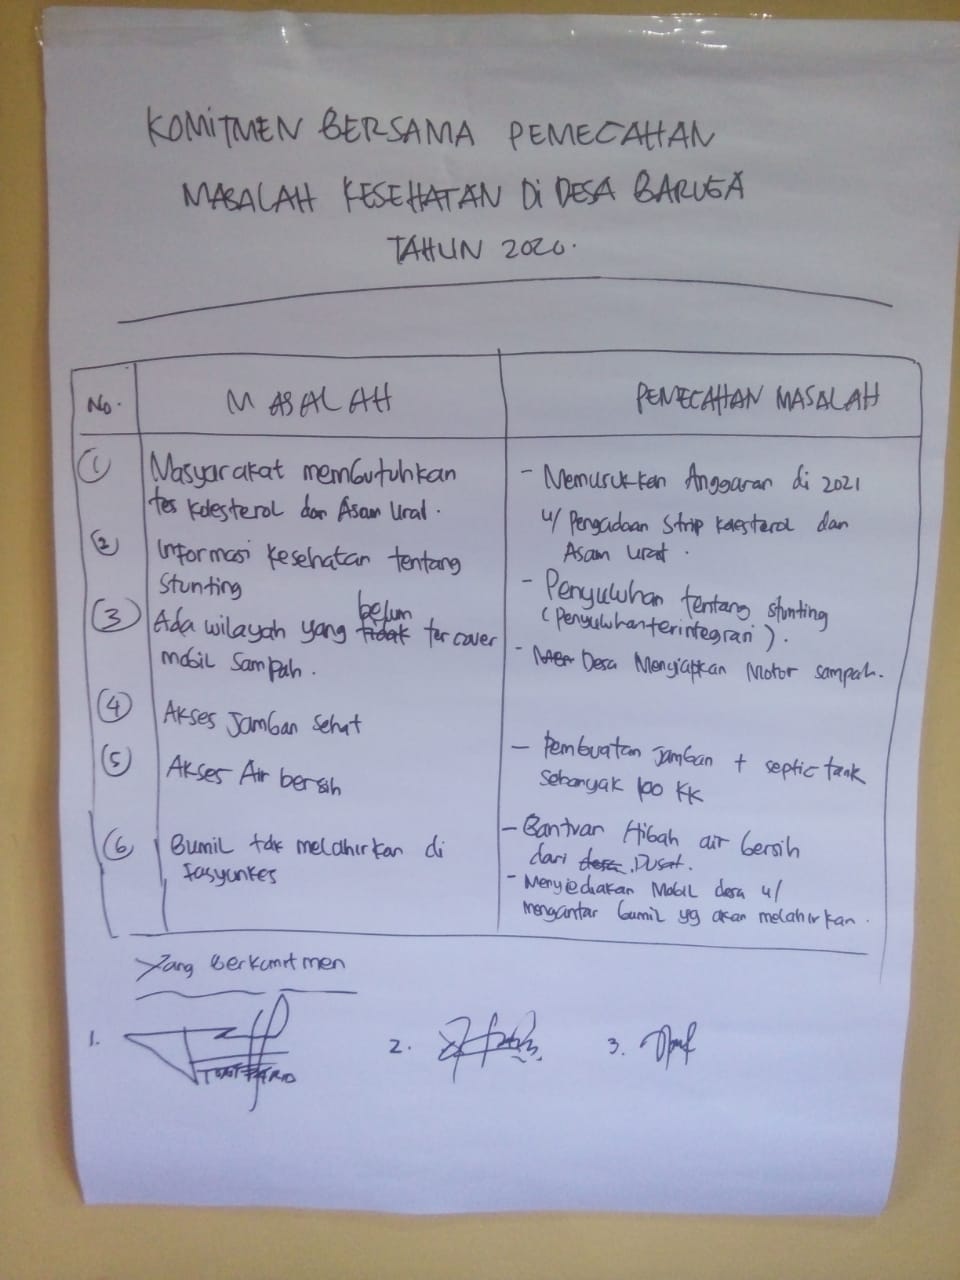 KOMITMEN BERSAMA PEMECAHAN
MASALAH KESEHATAN DI DESA BARUGA
TAHUN 2020.
No.
MASALAH
PEMECAHAN MASALAH
1
Masyarakat membutuhkan
tes Kolesterol dan Asam Urat.
2
Informasi kesehatan tentang
Stunting
3
belum
Ada wilayah yang tidak tercover
mobil sampah.
4
Akses jamban sehat
5
Akses Air bersih
6
Bumil tdk melahirkan di
fasyankes
- Memasukkan Anggaran di 2021
u/ Pengadaan Strip kolesterol dan
Asam urat.
- Penyuluhan tentang stunting
(penyuluhan terintegrasi).
- Desa Menyiapkan Motor sampah.
- Pembuatan jamban + septic tank
sebanyak 100 KK
- Bantuan Hibah air bersih
dari desa Pusat.
- Menyediakan Mobil desa u/
mengantar bumil yg akan melahirkan.
Yang Berkomitmen
1.
2.
3.